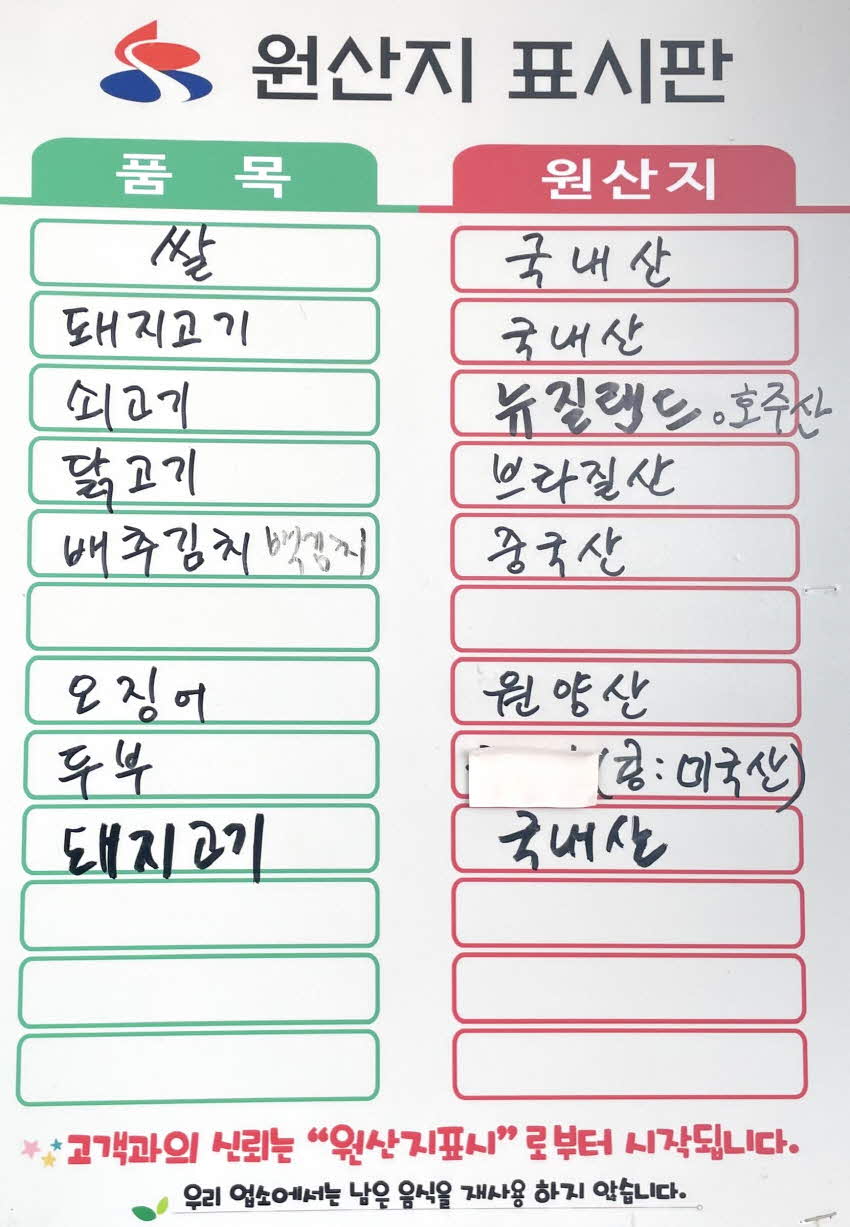 원산지 표시판
품 목 원산지
쌀 국내산
돼지고기 국내산
쇠고기 뉴질랜드.호주산
닭고기 브라질산
배추김치 백김치 중국산
오징어 원양산
두부 (콩:미국산)
돼지고기 국내산
고객과의 신뢰는 “원산지표시”로부터 시작됩니다.
우리 업소에서는 남은 음식을 재사용 하지 않습니다.